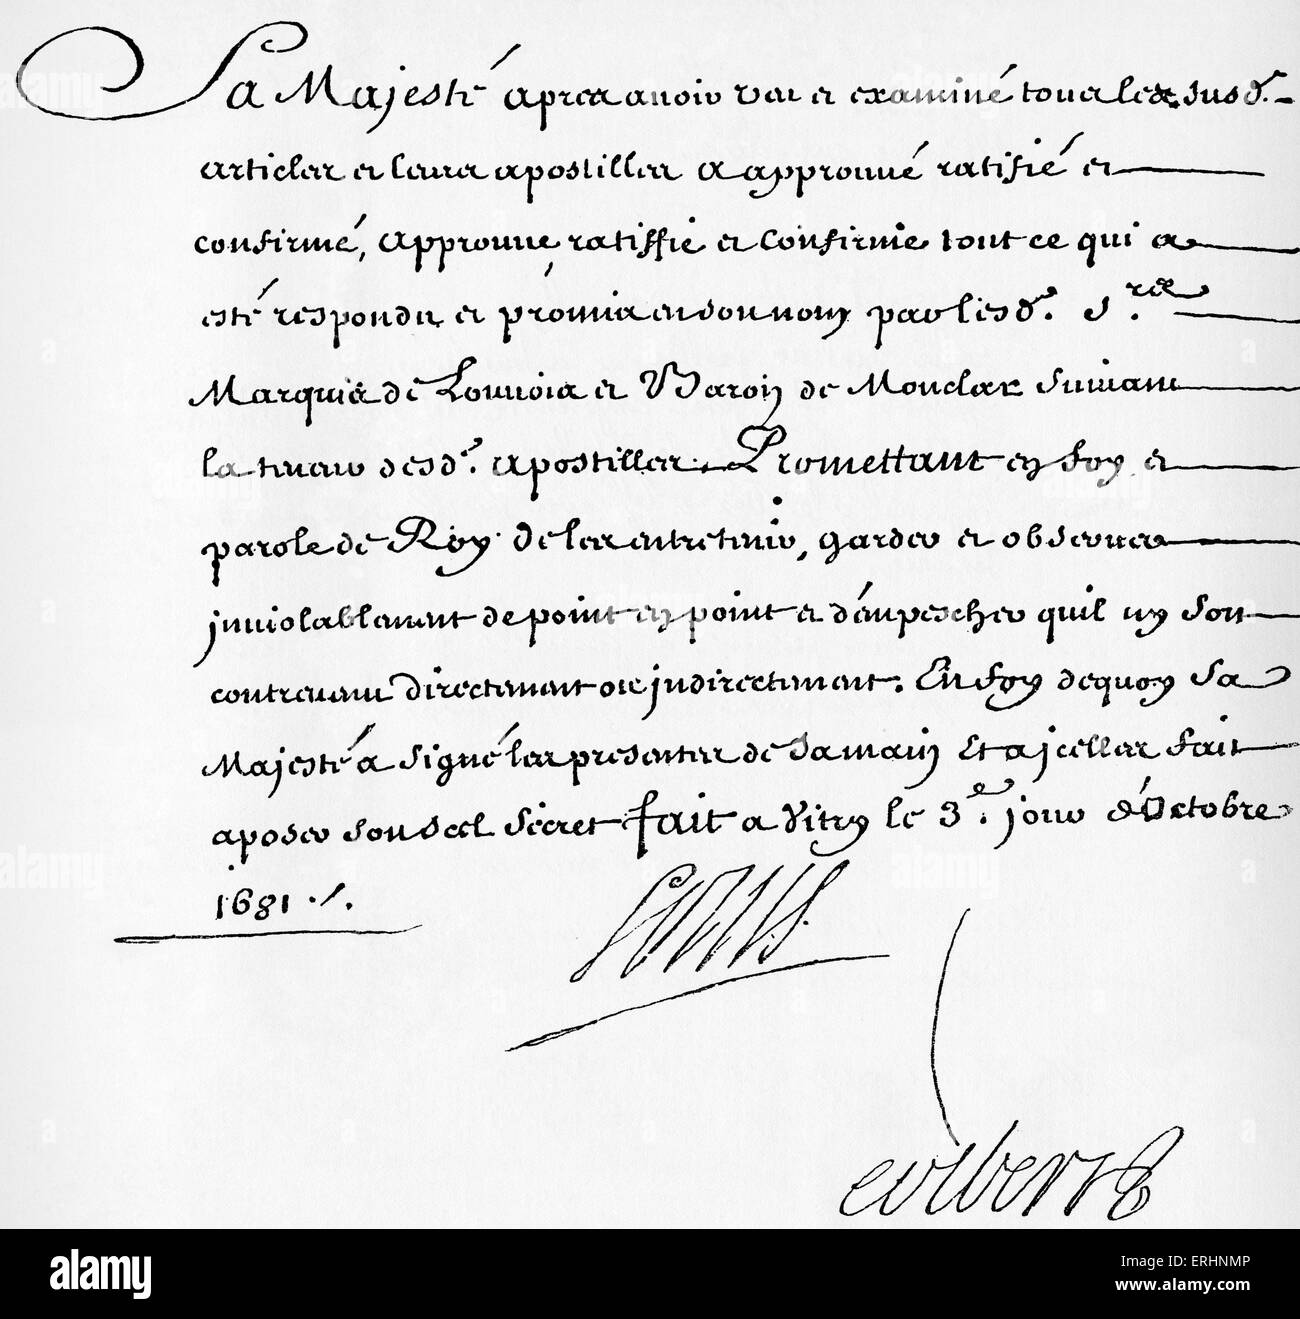 Sa Majesté apres avoir veu et examiné tous les susd.
articles et leurs apostilles a approuvé ratifié et
confirmé, approuve, ratiffie et confirme tout ce qui a
esté respondu et promis en son nom par lesd. S.rs
Marquis de Louvois et Baron de Monclar suivant
la teneur desd. apostilles. Promettant en foy et
parole de Roy de les entretenir, garder et observer
inviolablement de point en point et d'empescher quil ny soit
contrevenu directement ou indirectement. En foy dequoy Sa
Majesté a signé les presentes de sa main Et a jcelles fait
aposer son scel secret fait a Vitry le 3.e jour d'Octobre
1681 ./.
Louis
Colbert
alamy
Image ID: ERHNMP
www.alamy.com